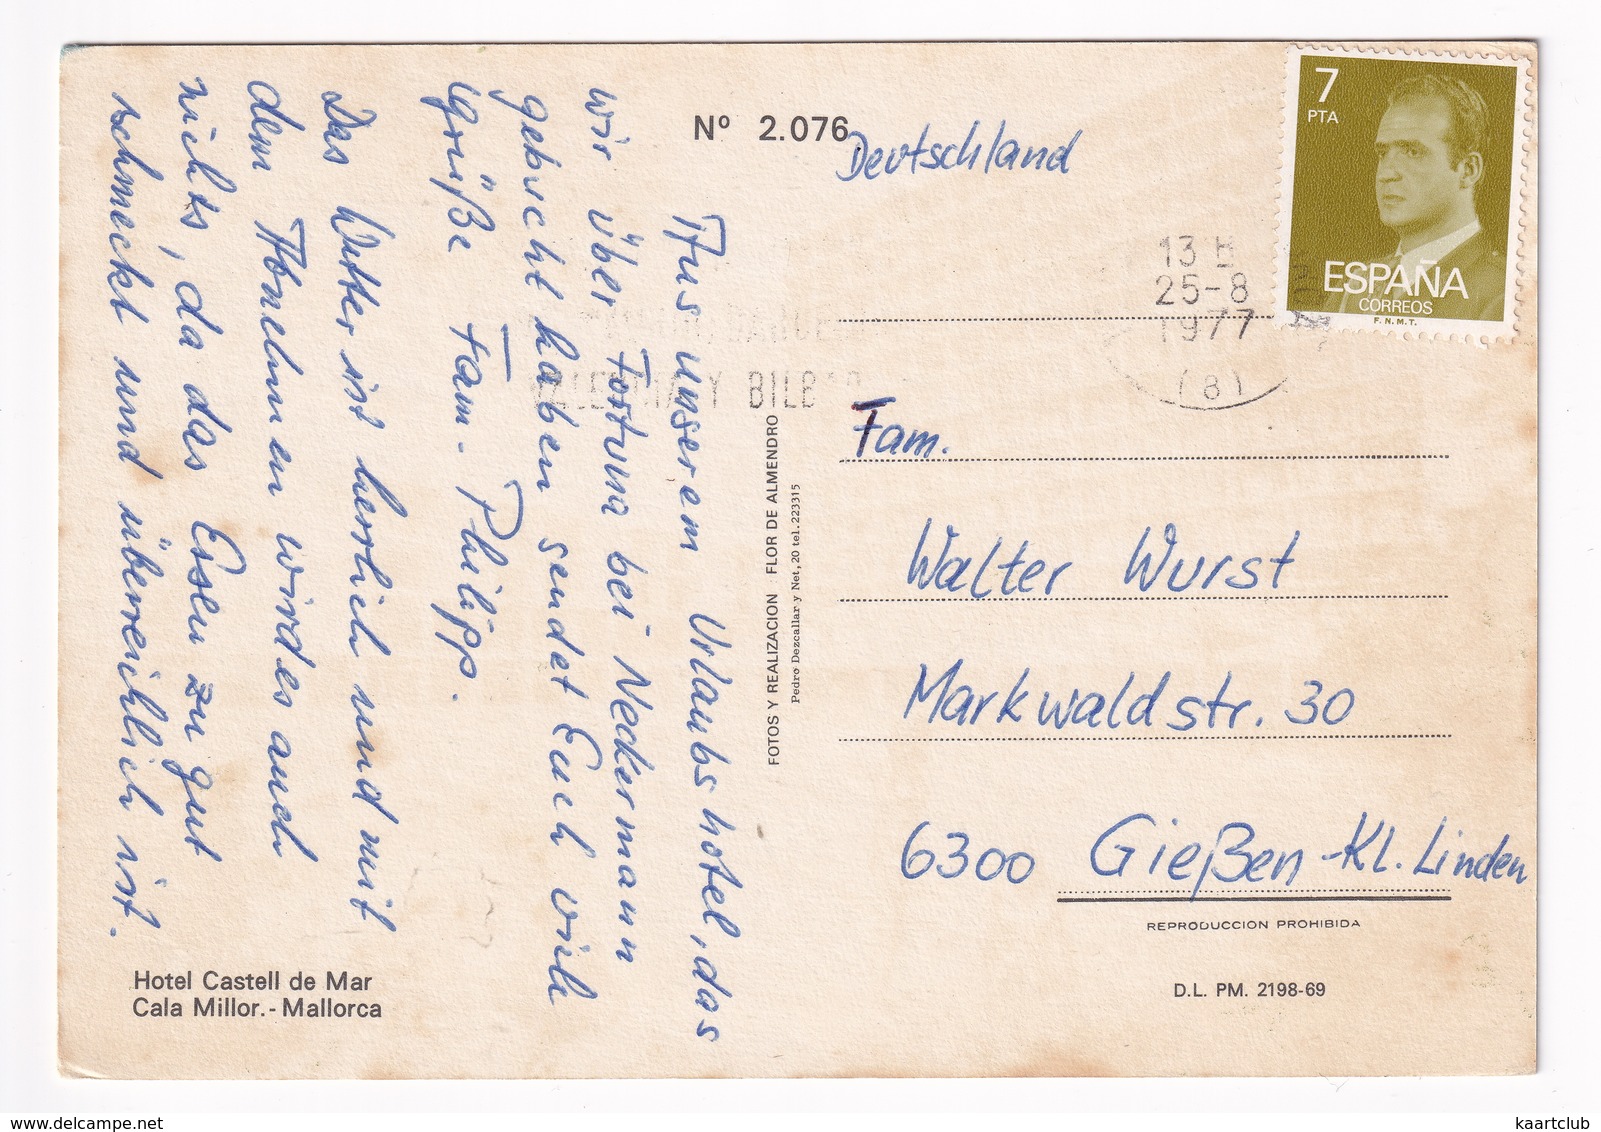 Nº 2.076
Deutschland
7
PTA
ESPAÑA
CORREOS
F.N.M.T.
13
25-8
1977
(8)
Y BILB
Aus unserem Urlaubshotel, das
wir über Fortuna bei Neckermann
gebucht haben sendet Euch viele
Grüße Fam. Philipp.
Das Wetter ist herrlich und mit
dem Abnehmen wird es auch
nichts, da das Essen zu gut
schmeckt und überreichlich ist.
FOTOS Y REALIZACION FLOR DE ALMENDRO
Pedro Dezcallar y Net, 20 tel. 223315
Fam.
Walter Wurst
Markwaldstr. 30
6300 Gießen-Kl. Linden
REPRODUCCION PROHIBIDA
D.L. PM. 2198-69
Hotel Castell de Mar
Cala Millor.- Mallorca
kaartclub